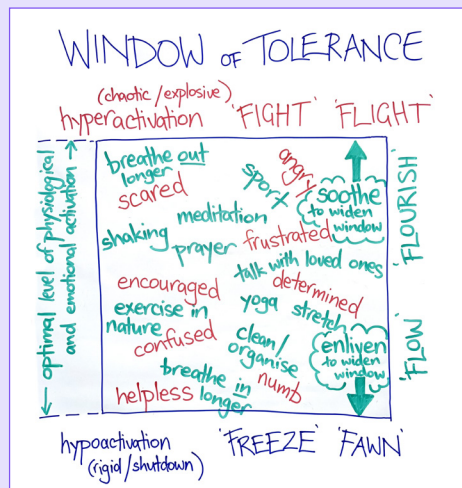 WINDOW OF TOLERANCE
(chaotic/explosive)
hyperactivation 'FIGHT' 'FLIGHT'
optimal level of physiological
and emotional activation
breathe out
longer
scared
sport
angry
soothe
to widen
window
meditation
shaking
prayer
frustrated
talk with loved ones
encouraged
determined
exercise in
nature
yoga
stretch
confused
clean/
organise
enliven
to widen
window
breathe in
longer
numb
helpless
'FLOURISH'
'FLOW'
hypoactivation
(rigid/shutdown)
'FREEZE' 'FAWN'